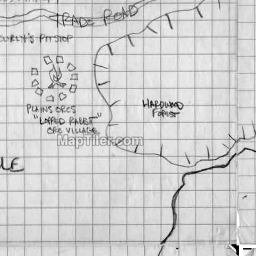 TRADE ROAD
CURLY'S PITSTOP
PLAINS ORCS
ORC VILLAGE
HARDWOOD
FOREST
MapTiler.com